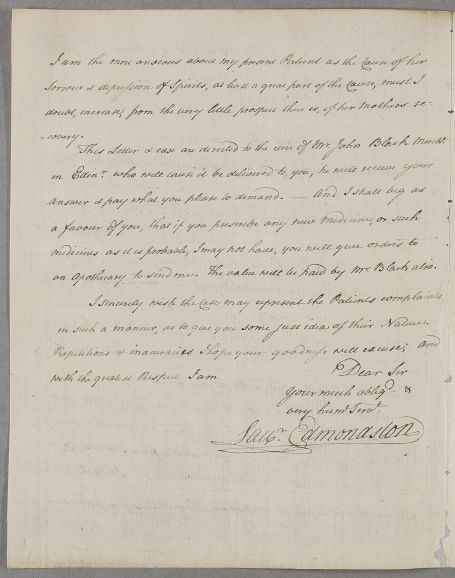 I am the more anxious about my present Patient as the Cause of her
Sorrow & depression of Spirits, at least a great part of the Cause, must I
doubt, increase, from the very little prospect there is, of her Mothers re-
-covery.
This Letter & case are directed to the care of Mr. John Black Mercht.
in Edenr. who will cause it be delivered to you, he will receive your
answer & pay what you please to demand. — And I shall beg as
a favour of you, that if you prescribe any new Medicine, or such
medicines as it is probable, I may not have, you will give orders to
an Apothecary to send me. The value will be paid by Mr. Black also.
I sincerely wish the Case may represent the Patients complaints
in such a manner, as to give you some just idea of their Nature.
Repetitions & inaccuracies I hope your goodness will excuse; and
with the greatest Respect I am
Dear Sir
Your much obligd. &
very humle. Servt.
Edmondston